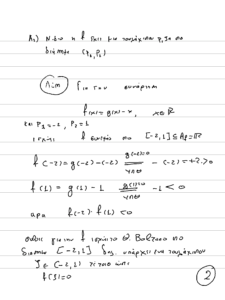 A₁) Ν.δ.ο η f έχει μια τουλάχιστον ρίζα στο
διάστημα (ρ₂, ρ₁)
Λύση Για την συνάρτηση
f(x) = g(x) - x, x∈R
και ρ₂ = -2, ρ₁ = 1
ισχύει f συνεχής στο [-2,1] ⊆ A_f = R
f(-2) = g(-2) - (-2) g(-2)=0 υποθ - (-2) = +2 > 0
f(1) = g(1) - 1 g(1)=0 υποθ -1 < 0
αρα f(-2) · f(1) < 0
για την f ισχύει το Θ Bolzano στο
διάστημα [-2,1] δηλ. υπάρχει ένα τουλάχιστον
ξ ∈ (-2,1) τέτοιο ώστε
f(ξ) = 0
2